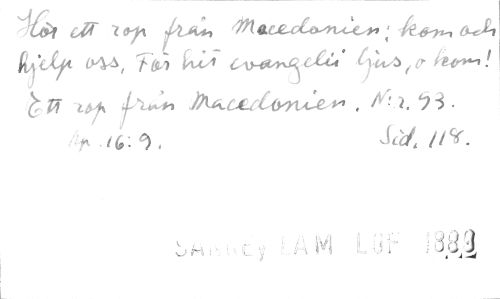 Hör ett rop från Macedonien; kom och
hjelp oss, För hit evangelii ljus, o kom!
Ett rop från Macedonien. N:r. 93.
Ap. 16:9. Sid. 118.
LAM LGF 1889